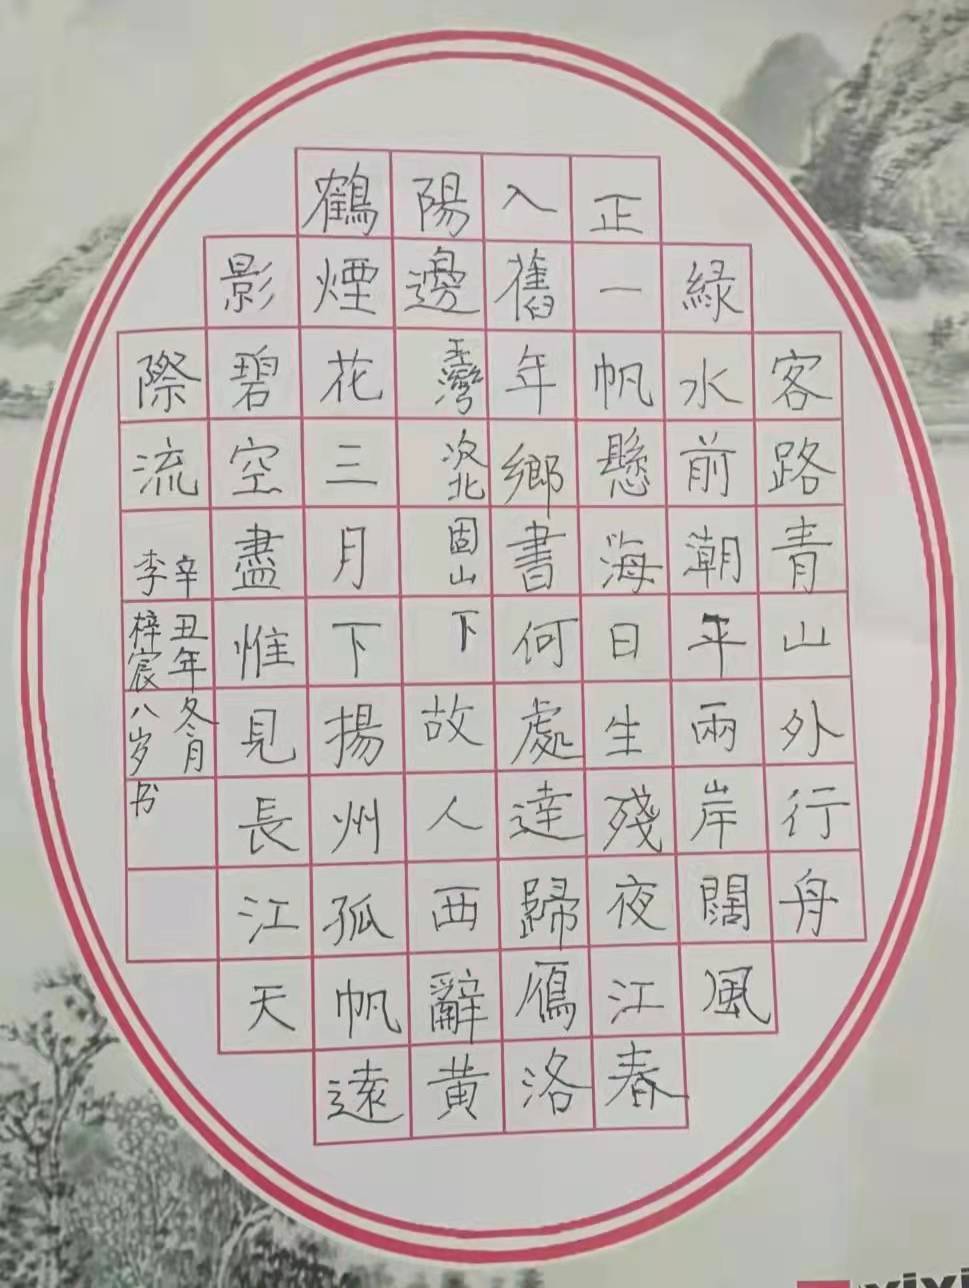 客路青山外行舟
緑水前潮平兩岸闊風
正一帆懸海日生殘夜江春
入舊年鄉書何處達歸鴈洛
陽邊王灣次北固山下故人西辭黄
鶴煙花三月下揚州孤帆遠
影碧空盡惟見長江天
際流
辛丑年冬月
李梓宸八岁书